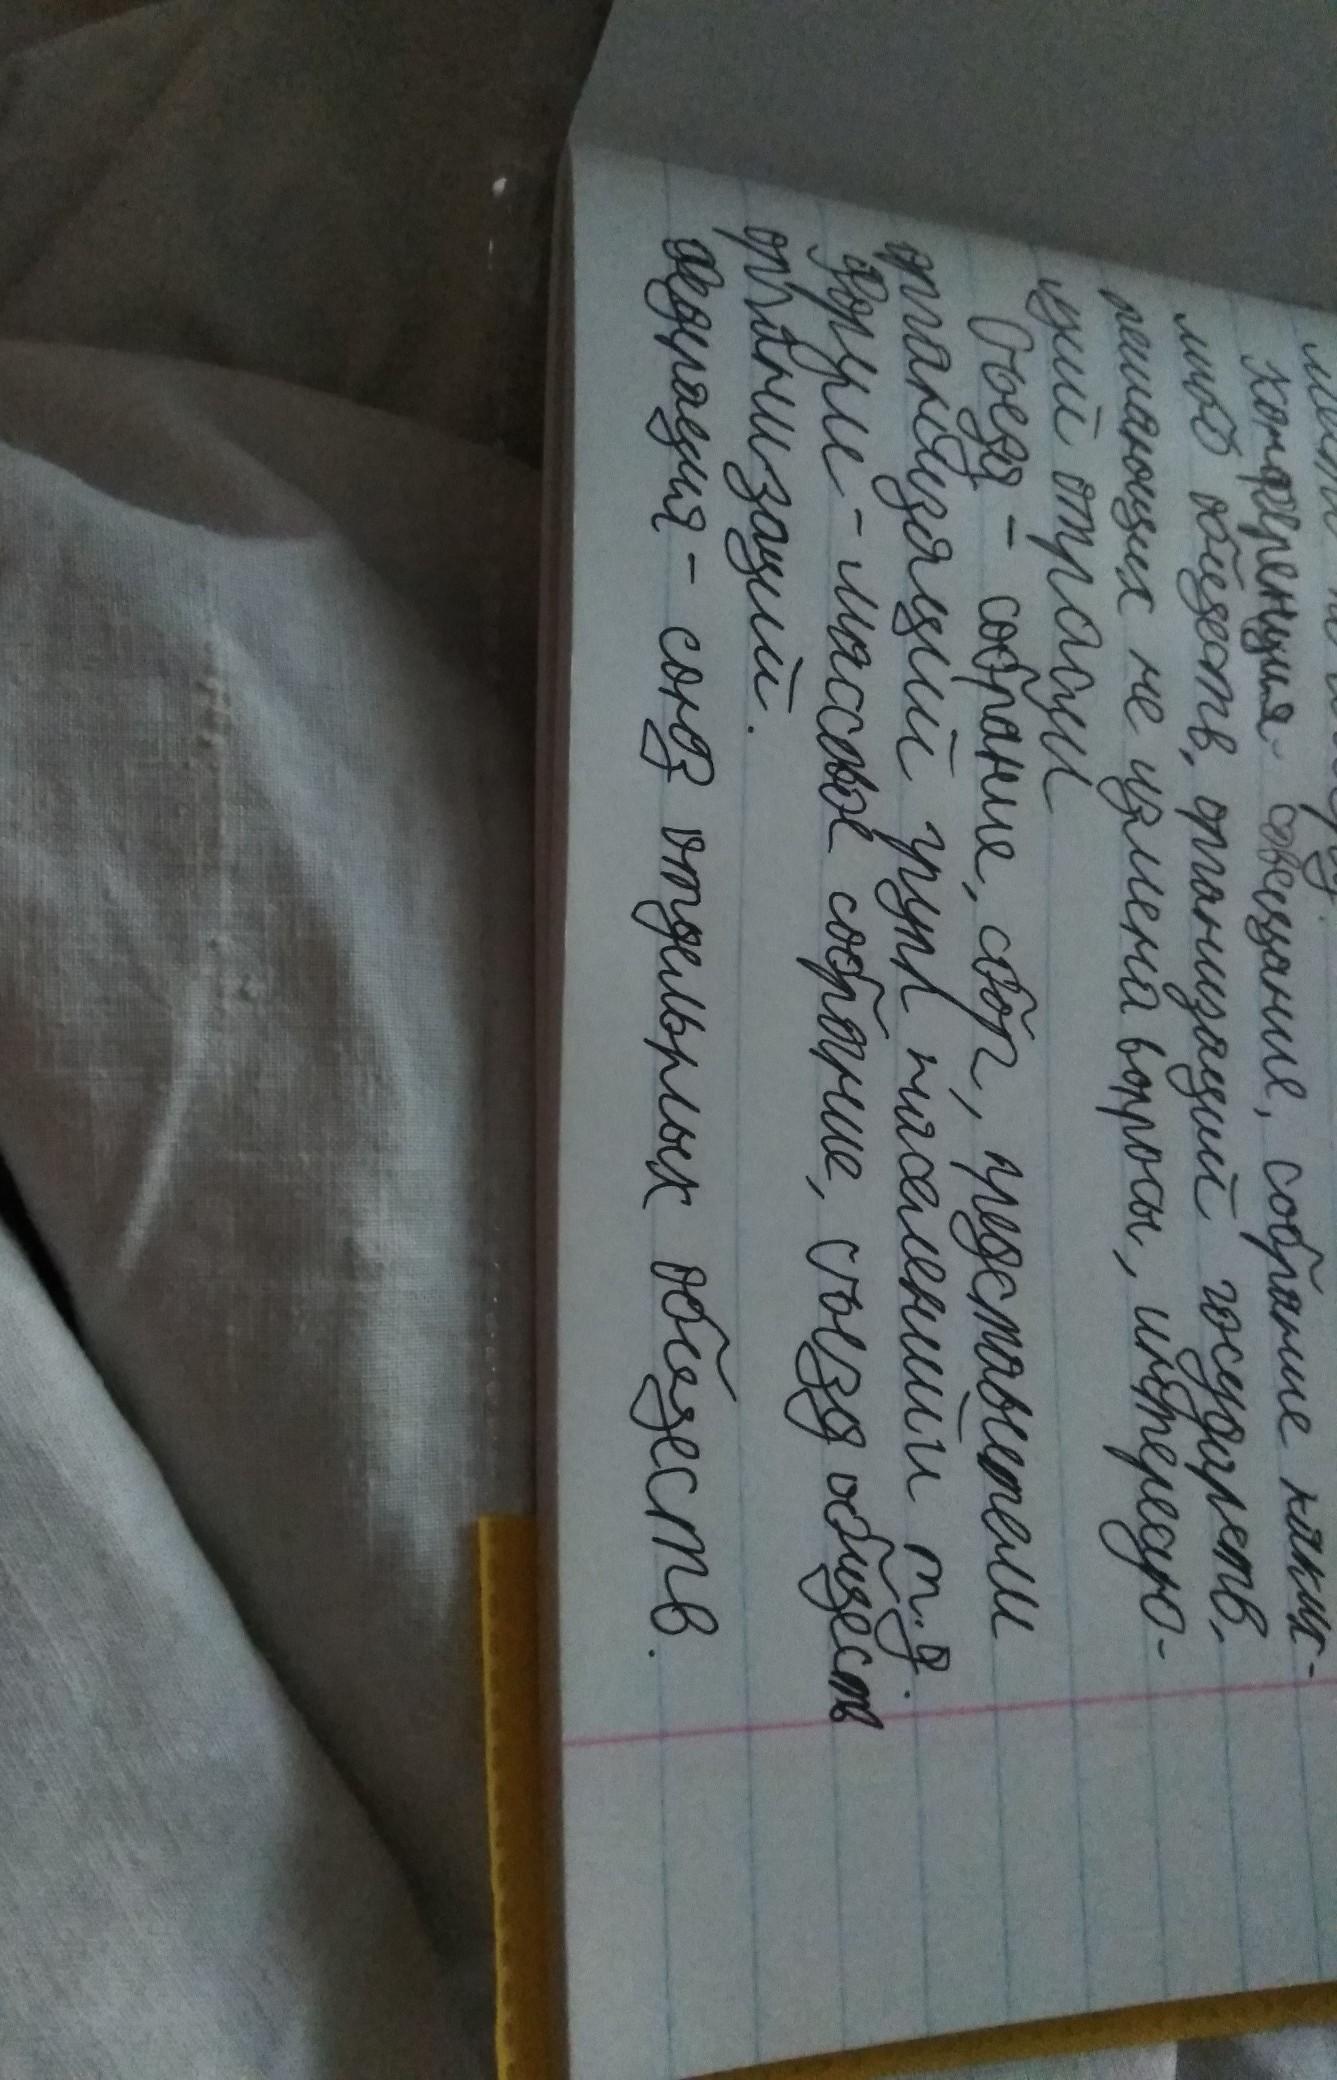 конференция - совещание, собрание каких-
либо обществ, организаций государств,
решающих не изменна вопросы, интересую-
щий отрасли
Съезд - собрание, сбог, представители
организаций групп населениий и т.д.
Форум - массовое собрание, съезд обществ
организаций.
федерация - союз отдельных обществ.